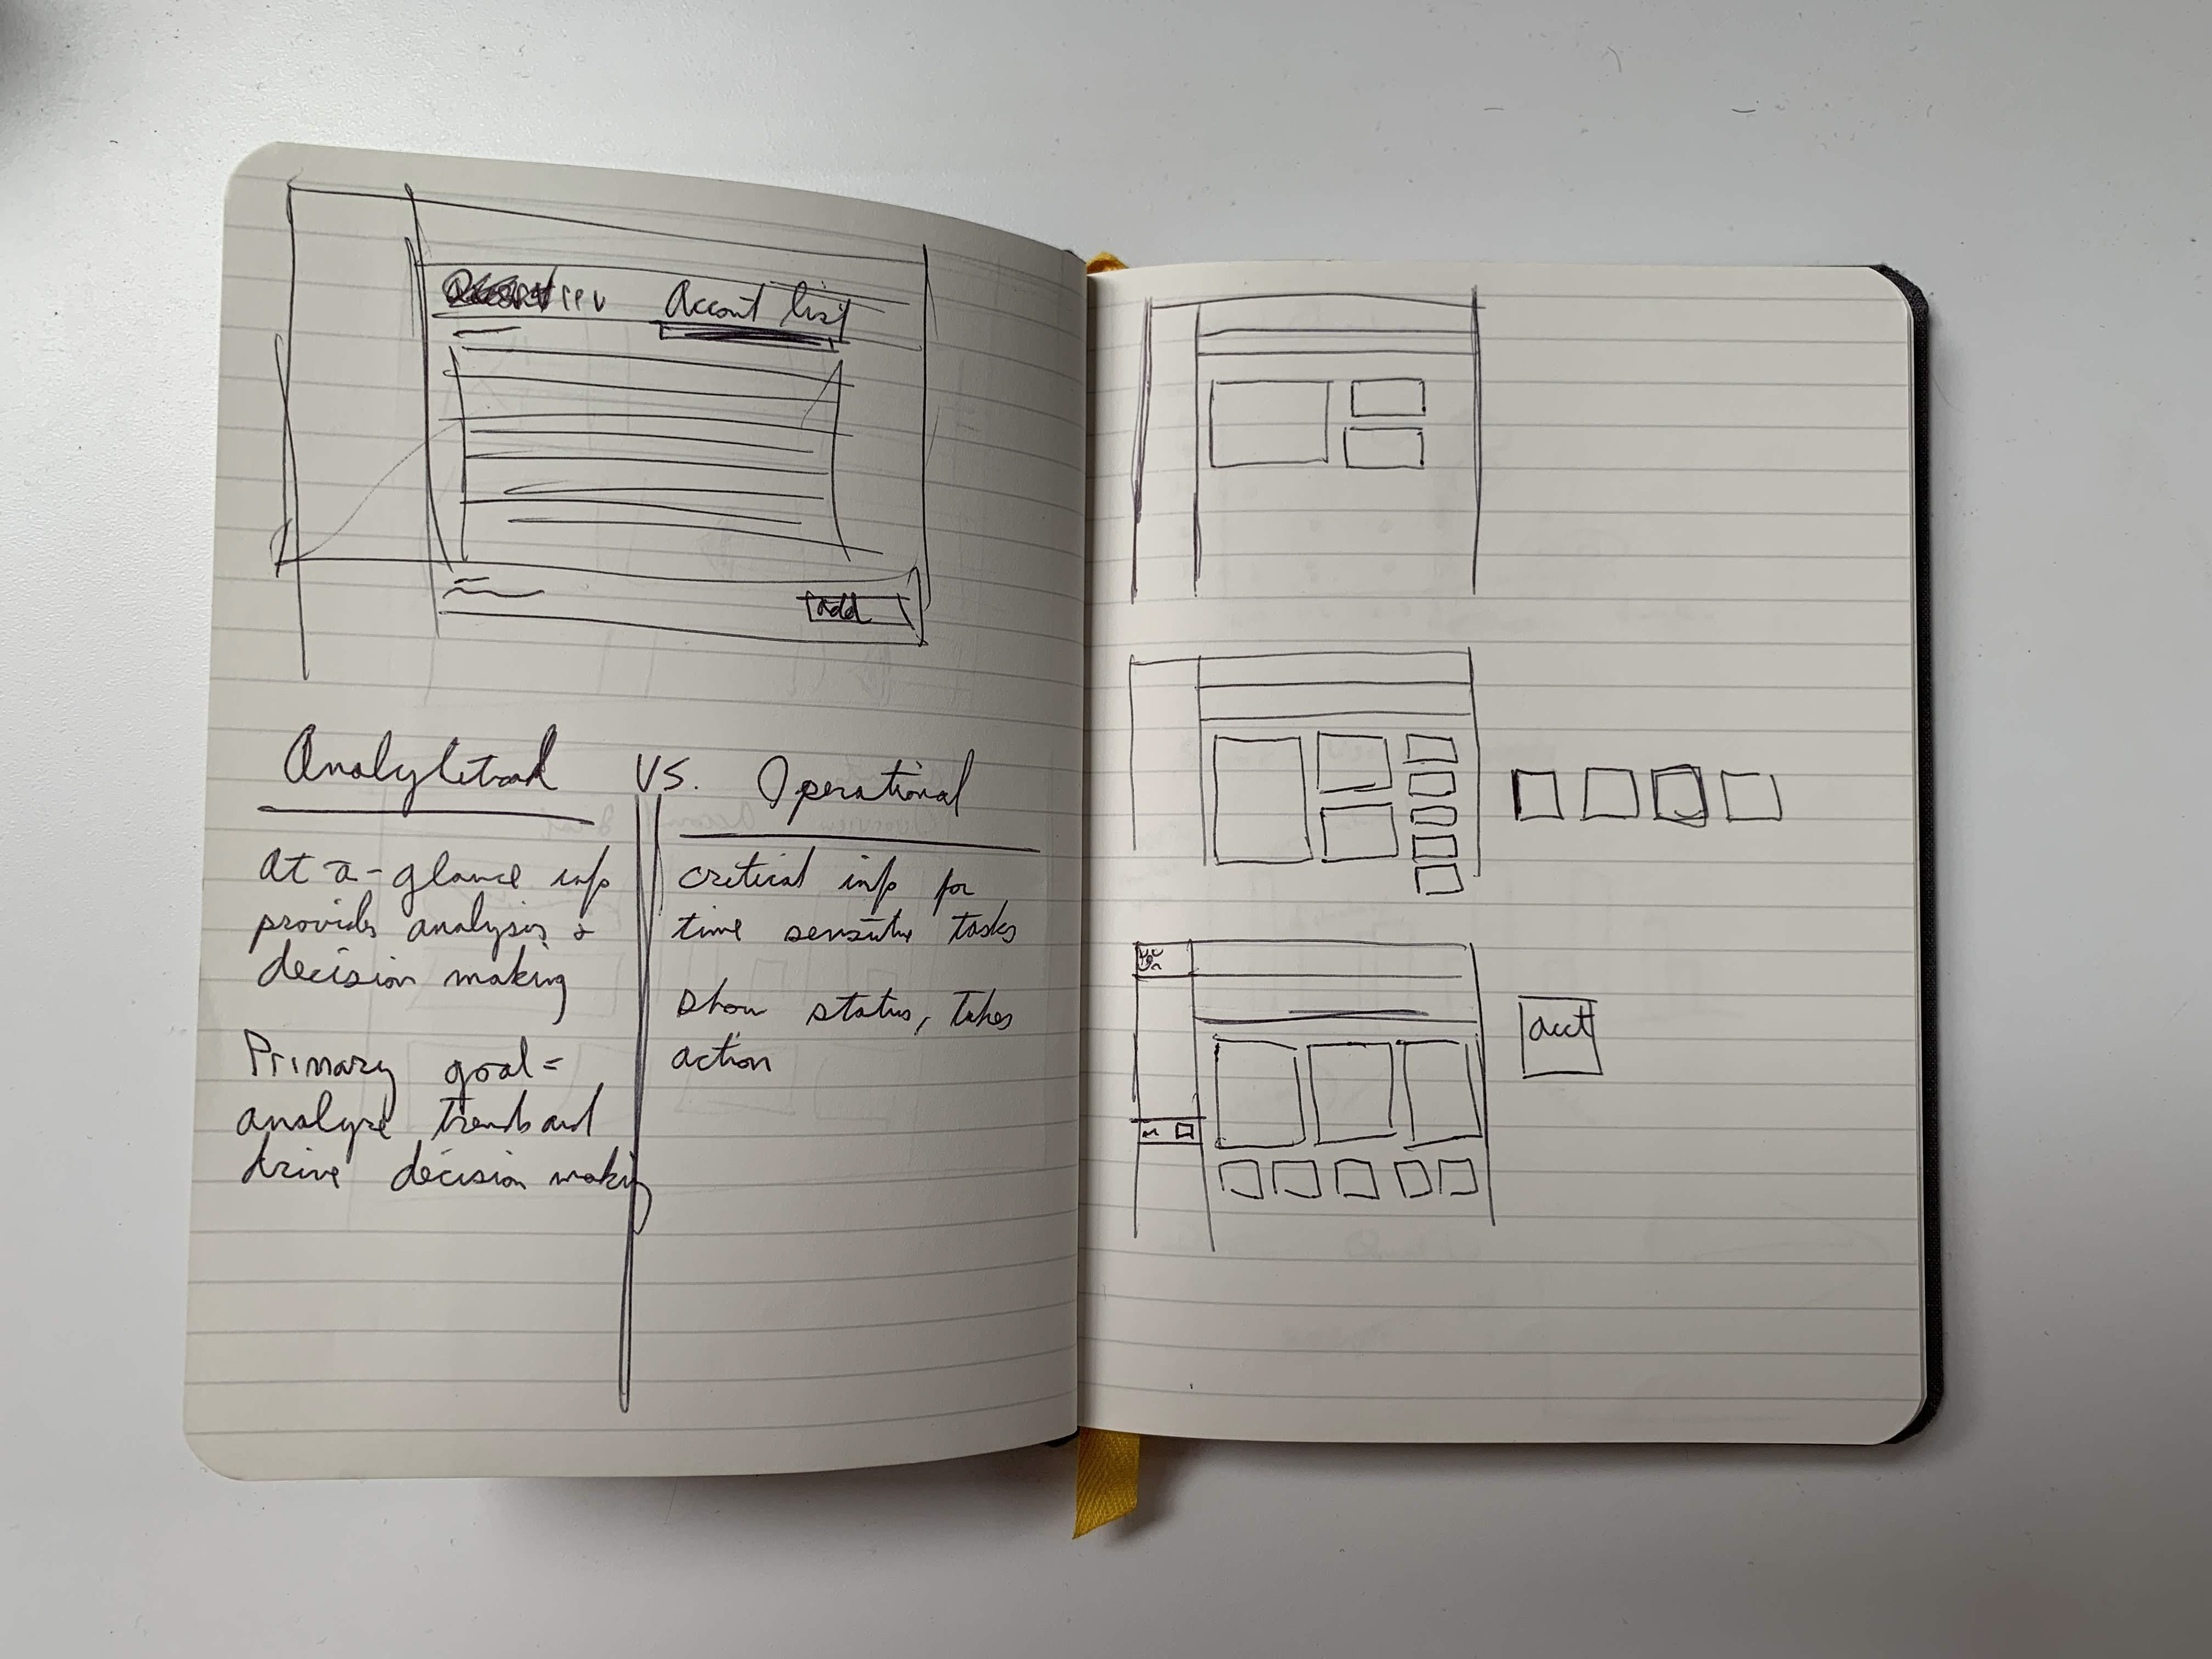 Account list
add
Analytical vs. Operational
at-a-glance info
provides analysis &
decision making
Primary goal =
analyze trends and
drive decision making
critical info for
time sensitive tasks
show status, takes
action
acct